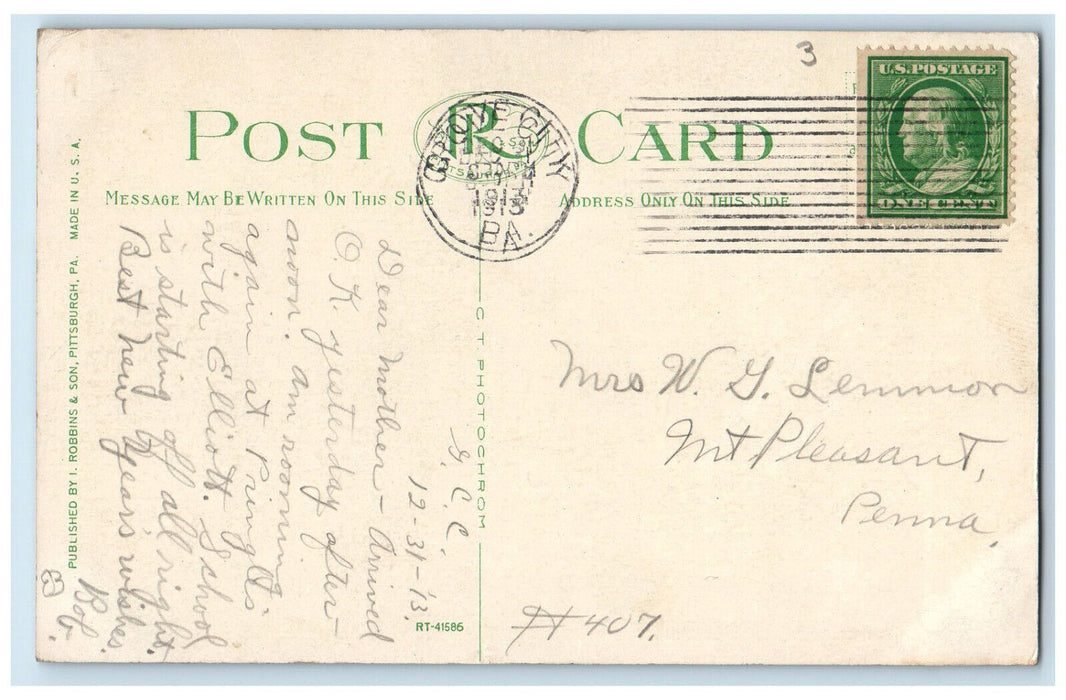 3
U.S. POSTAGE
ONE CENT
POST CARD
R
GROVE CITY
PA.
1913
MESSAGE MAY BE WRITTEN ON THIS SIDE
ADDRESS ONLY ON THIS SIDE
PUBLISHED BY I. ROBBINS & SON, PITTSBURGH, PA. MADE IN U. S. A.
C T PHOTOCHROM
RT-41586
G. C. C.
12-31-'13.
Dear Mother - Arrived
O. K. yesterday after-
noon. Am rooming
again at Pringtts
with Elliott. School
is starting off all right.
Best New Year's wishes.
Bob.
Mrs W. G. Lemmon
Mt Pleasant,
Penna,
#407.